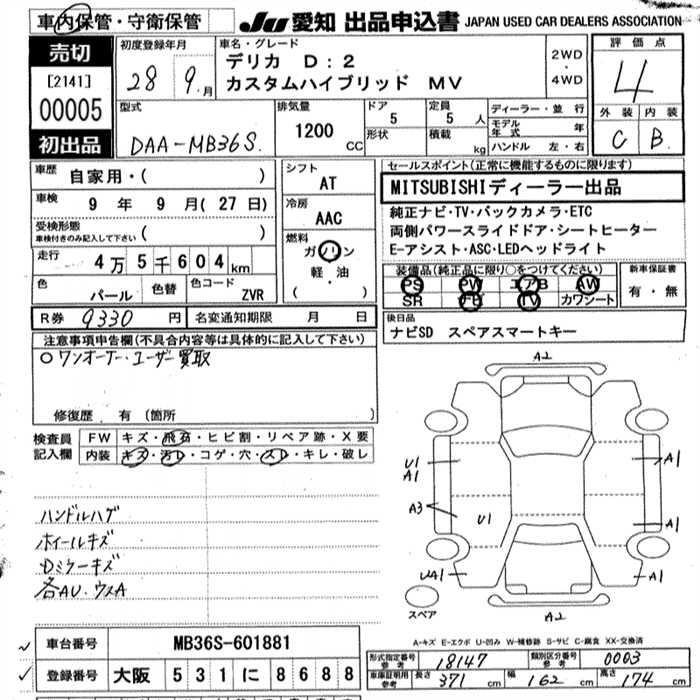 車内保管・守衛保管
Ju 愛知 出品申込書 JAPAN USED CAR DEALERS ASSOCIATION
売切
[2141]
00005
初出品
初度登録年月
28年 9月
車名・グレード
デリカ D:2
カスタムハイブリッド MV
2WD
・
4WD
評価点
4
外装 内装
C B
型式
DAA-MB36S
排気量
1200 CC
ドア
5
形状
定員
5 人
積載
kg
ディーラー・並行
モデル年式 年
ハンドル 左・右
車歴 自家用・( )
車検 9 年 9 月 (27 日)
受検形態
車検付きのみ記入して下さい ( )
走行 4万 5千 604 km
色 パール 色替 色コード ZVR
シフト
AT
冷房
AAC
燃料
ガソリン
軽・油
( )
R券 9330 円 名変通知期限 月 日
セールスポイント(正常に機能するものに限ります)
MITSUBISHIディーラー出品
純正ナビ・TV・バックカメラ・ETC
両側パワースライドドア・シートヒーター
E-アシスト・ASC・LEDヘッドライト
装備品(純正品に限り○をつけてください)
PS PW エアB AW
SR TV カワシート
新車保証書
有・無
後日品
ナビSD スペアスマートキー
注意事項申告欄(不具合内容等は具体的に記入して下さい)
○ワンオーナー・ユーザー買取
修復歴 有 (箇所 )
検査員記入欄
FW キズ・飛石・ヒビ割・リペア跡・X要
内装 キズ・汚レ・コゲ・穴・スレ・キレ・破レ
ハンドルハゲ
ホイールキズ
Dミラーキズ
各AU.ウスA
A2
U1
A1
A1
A3
U1
A1
UA1
A1
スペア
A2
A-キズ E-エクボ U-凹み W-補修跡 S-サビ C-腐食 XX-交換済
車台番号 MB36S-601881
登録番号 大阪 531 に 8688
形式指定番号 参考 18147 類別区分番号 参考 0003
車庫証明用 参考 長さ 371 cm 幅 162 cm 高さ 174 cm